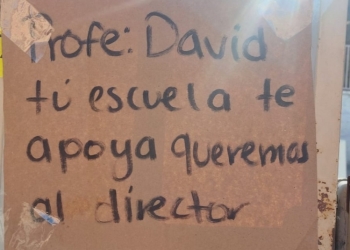 Profe: David
tú escuela te
apoya queremos
al director